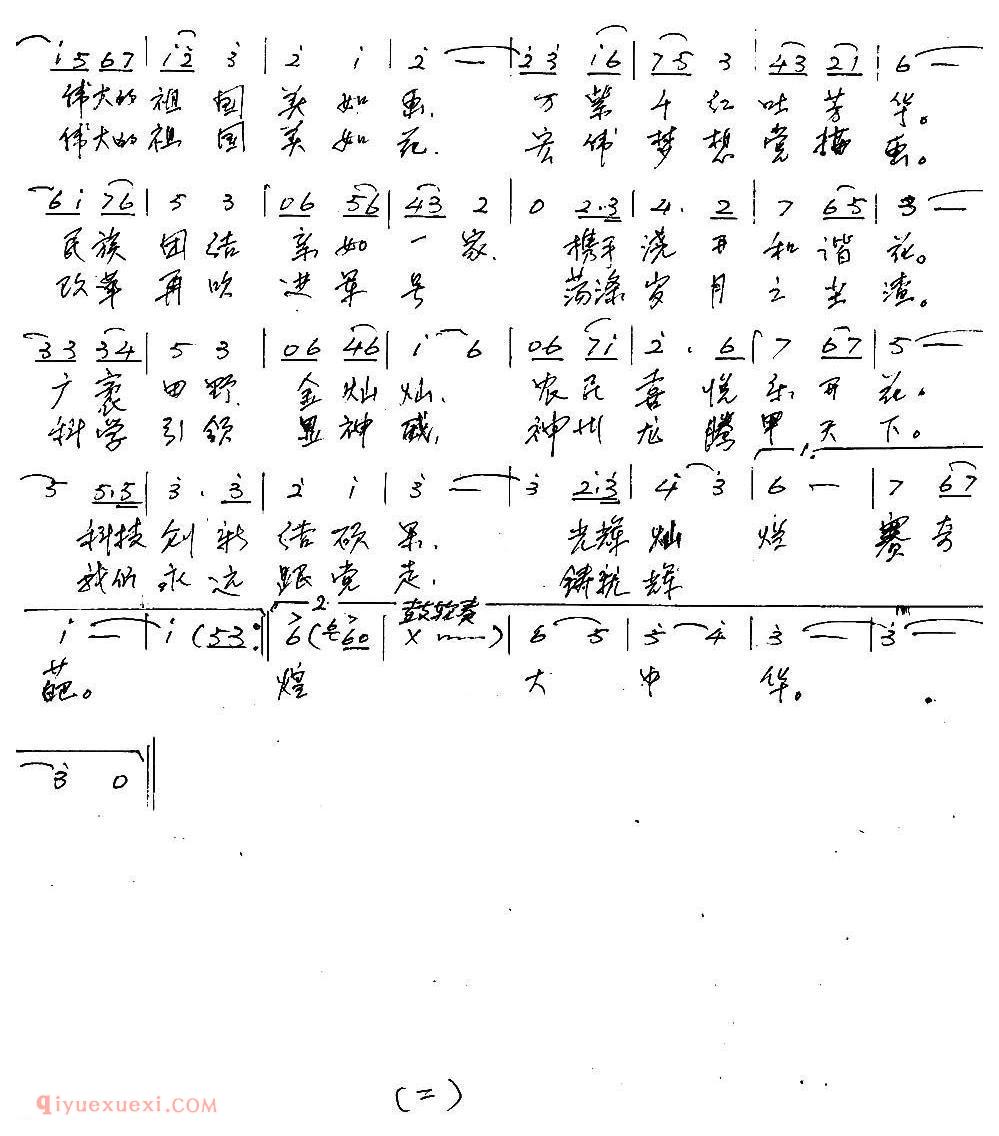 i 5 6 7 | i 2 3 | 2 i 2 — 2 3 i 6 | 7 5 3 | 4 3 2 1 | 6 —
伟大的祖国美如画. 万紫千红吐芳华。
伟大的祖国美如花. 宏伟梦想党描画。
6 i 7 6 | 5 3 | 0 6 5 6 | 4 3 2 | 0 2. 3 | 4. 2 | 7 6 5 | 3 —
民族团结亲如一家. 携手浇开和谐花。
改革再吹进军号 荡涤岁月之尘渣。
3 3 3 4 | 5 3 | 0 6 4 6 | i 6 | 0 6 7 i | 2. 6 | 7 6 7 | 5 —
广袤田野金灿灿. 农民喜悦乐开花。
科学引领显神威, 神州龙腾甲天下。
1.
5 5. 5 | 3. 3 | 2 i | 3 — | 3 2. 3 | 4 3 | 6 — | 7 6 7
科技创新结硕果. 光辉灿烂赛奇
我们永远跟党走. 铸就辉
2. 鼓较费
i — | i ( 5 3 :|| 6 ( 6 0 | X ) | 6 5 | 5 4 | 3 — | 3 —
葩。 煌 大中华。
3 0 ||
(二)
qiyuexuexi.COM